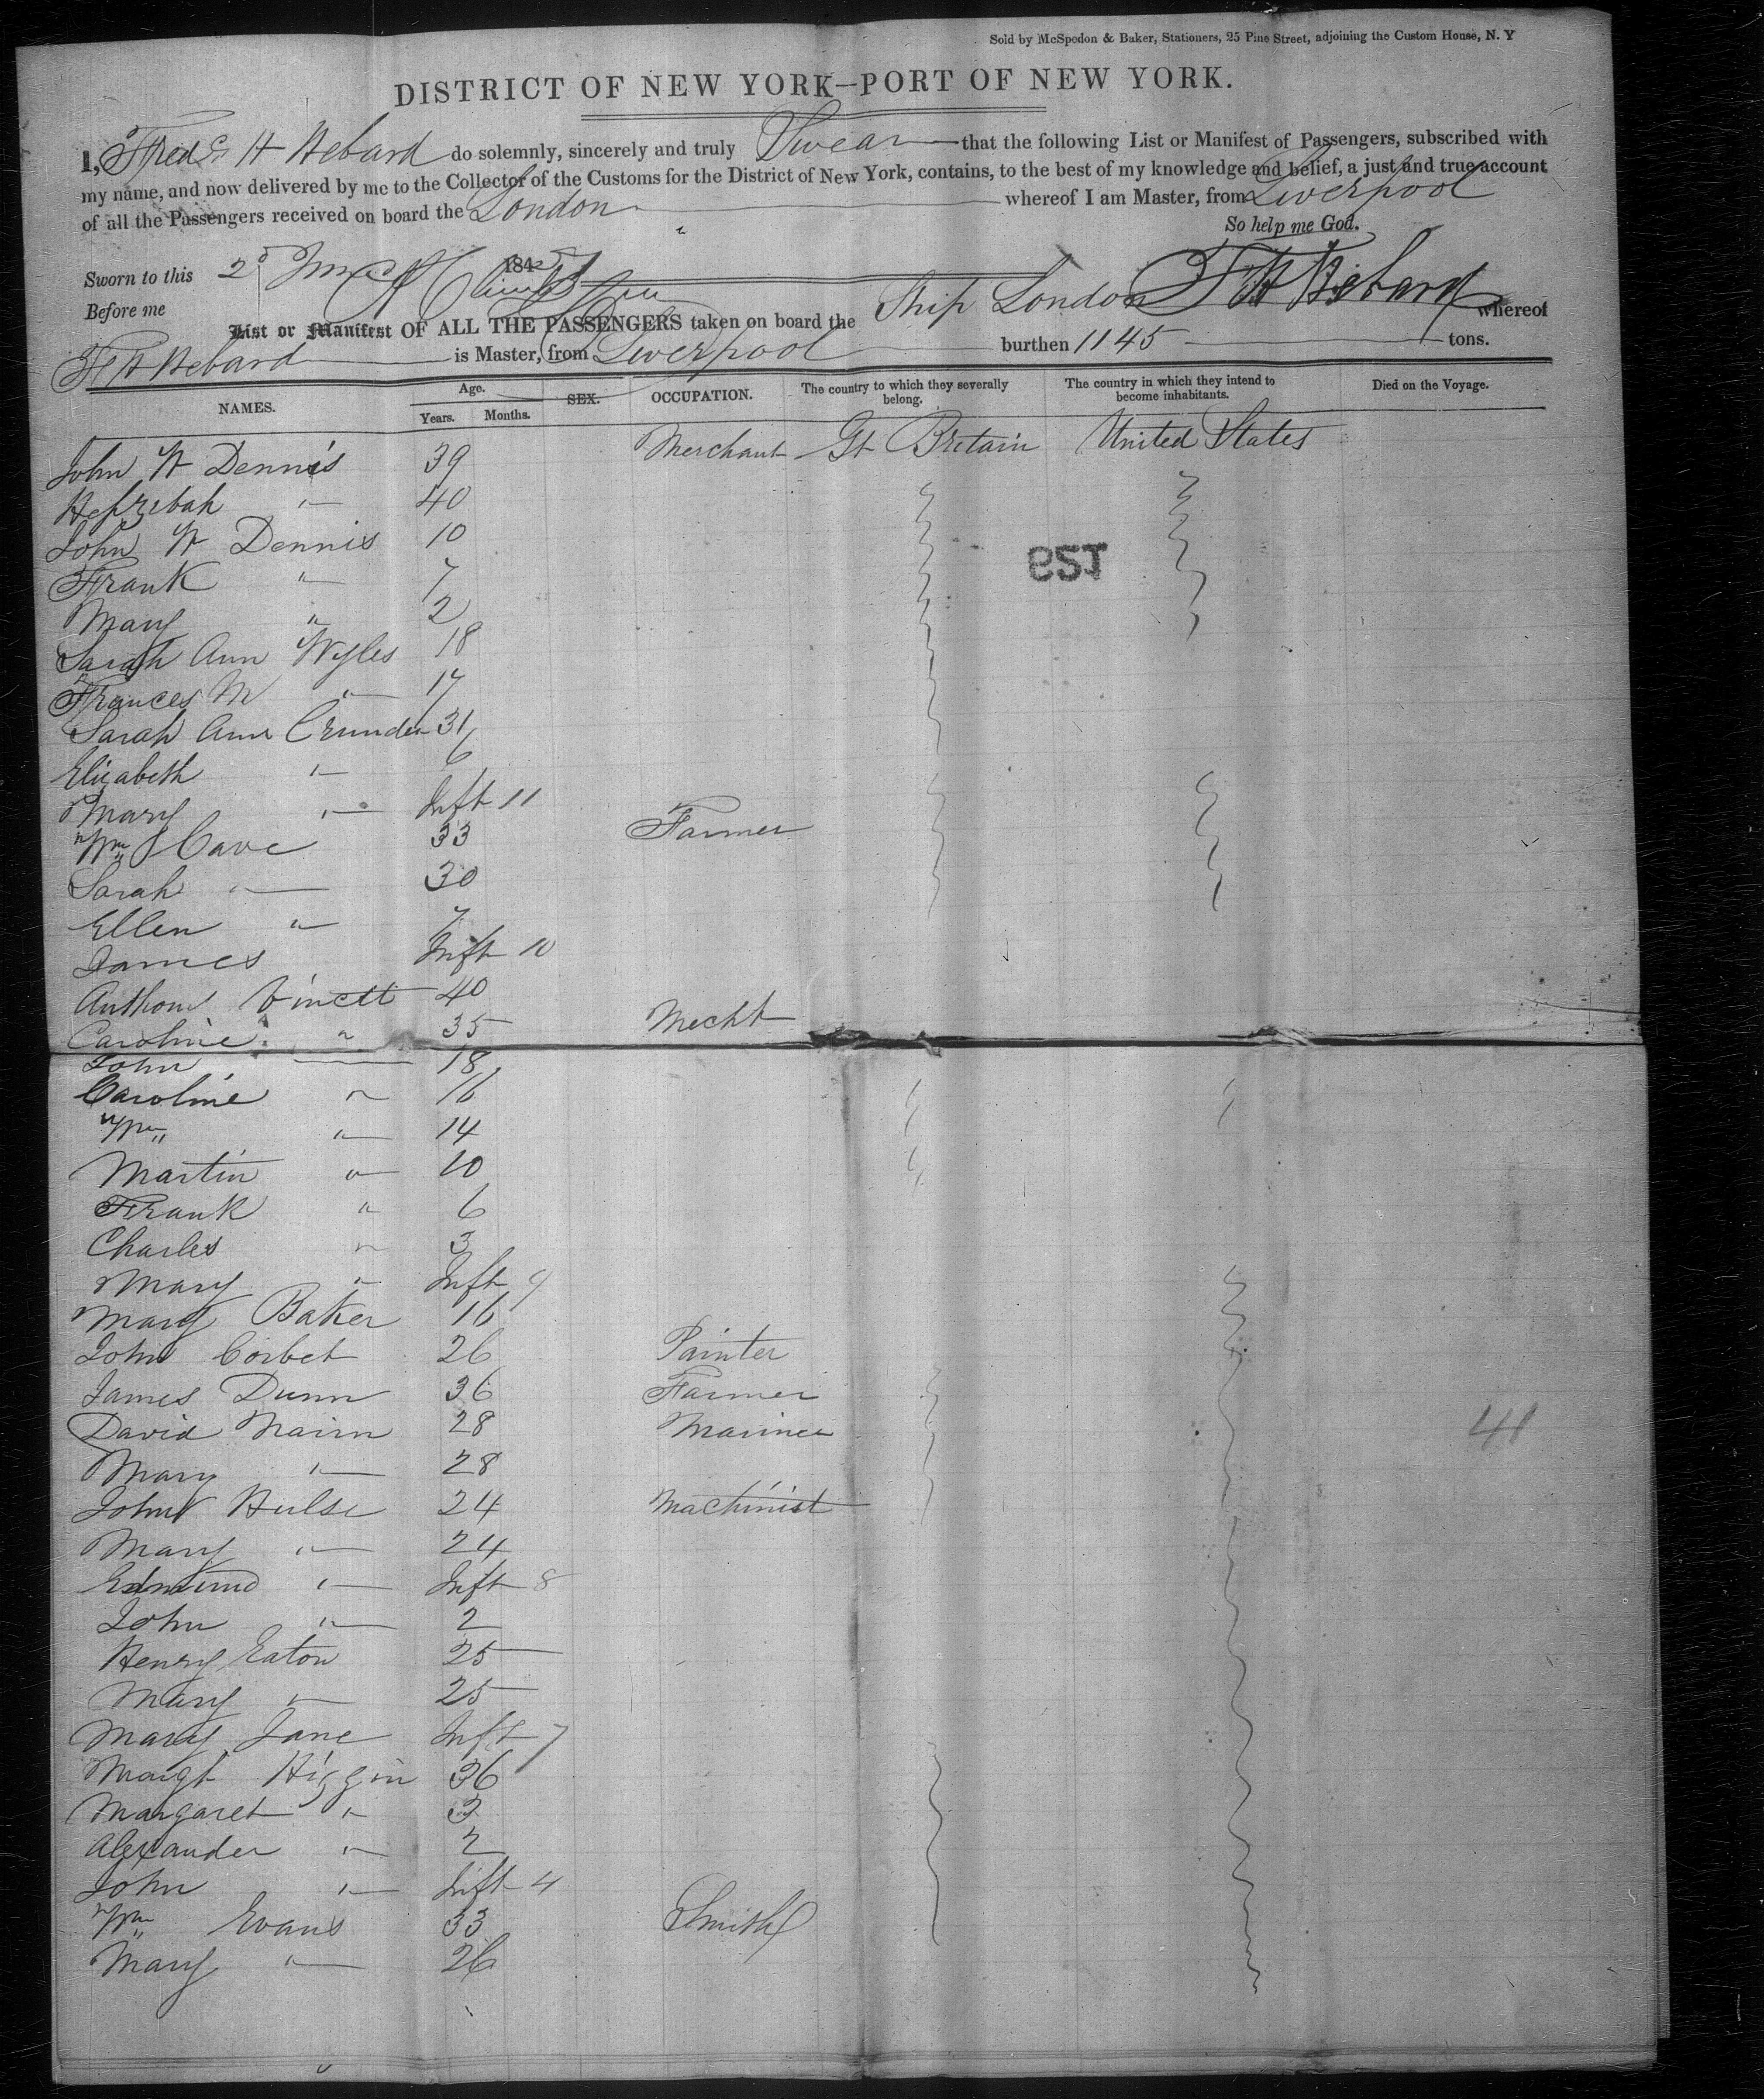 Sold by McSpedon & Baker, Stationers, 25 Pine Street, adjoining the Custom House, N. Y
DISTRICT OF NEW YORK—PORT OF NEW YORK.
I, Fredk H Hebard do solemnly, sincerely and truly Swear that the following List or Manifest of Passengers, subscribed with
my name, and now delivered by me to the Collector of the Customs for the District of New York, contains, to the best of my knowledge and belief, a just and true account
of all the Passengers received on board the London whereof I am Master, from Liverpool
So help me God.
Sworn to this 2d 184
Before me
F H Hebard
List or Manifest OF ALL THE PASSENGERS taken on board the Ship London whereof
F H Hebard is Master, from Liverpool burthen 1145 tons.
NAMES. Age. Years. Months. SEX. OCCUPATION. The country to which they severally belong. The country in which they intend to become inhabitants. Died on the Voyage.
John W Dennis 39 Merchant Gt Britain United States
Hepzebah " 40
John W Dennis 10
Frank " 7
Mary " 2
129
Sarah Ann Wyles 18
Frances M " 17
Sarah Ann Crunden 31
Elizabeth " 6
Mary " Inft 11
Wm Cave 33 Farmer
Sarah " 30
Ellen " 7
James Inft 10
Anthony 40 Mecht
Caroline " 35
John 18
Caroline " 16
Wm " 14
Martin " 10
Frank " 6
Charles " 3
Mary " Inft 9
Mary Baker 16
John Corbet 26 Painter
James Dunn 36 Farmer
David Nairn 28 Mariner
41
Mary " 28
John Hulse 24 Machinist
Mary " 24
Edmund " Inft 8
John " 2
Henry Eaton 25
Mary " 25
Mary Jane Inft 7
Margt Higgin 36
Margaret " 3
Alexander " 2
John " Inft 4
Wm Evans 33 Smith
Mary " 26